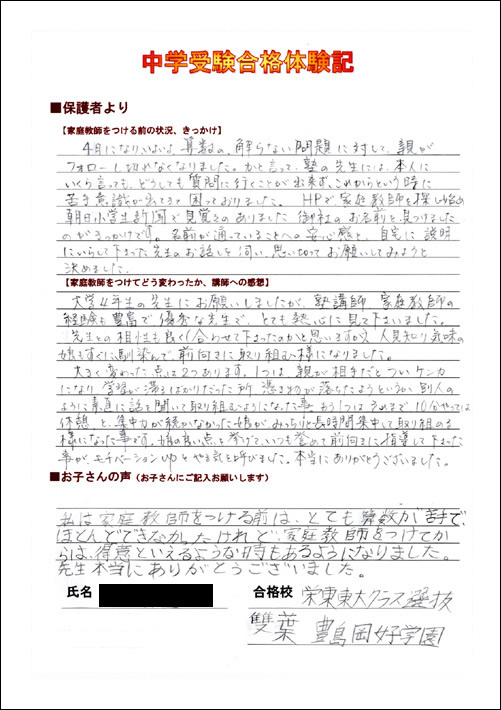 中学受験合格体験記
■保護者より
【家庭教師をつける前の状況、きっかけ】
4月になりいよいよ算数の、解らない問題に対して、親が
フォローし切れなくなりました。かと言って、塾の先生には、本人に
いくら言っても、どうしても質問に行くことが出来ず、これからという時に
苦手意識が出てきて困っておりました。HPで家庭教師を探し始め
朝日小学生新聞で見覚えのありました御社のお名前を見つけました
のがきっかけです。名前が通っていることへの安心感と、自宅に説明
にいらして下さった先生のお話しを伺い、思い切ってお願いしてみようと
決めました。
【家庭教師をつけてどう変わったか、講師への感想】
大学4年生の先生にお願いしましたが、塾講師 家庭教師の
経験も豊富で優秀な先生で、とても熱心に見て下さいました。
先生との相性も良く(合わせて下さったのかと思いますが)、人見知り気味の
娘もすぐに馴染んで、前向きに取り組む様になりました。
大きく変わった点は2つあります。1つは親が相手だとついケンカ
になり学習が滞るばかりだった所、憑き物が落ちたようというか別人の
ように素直に話を聞いて取り組むようになった事 もう1つはそれまで10分やっては
休憩と、集中力が続かなかった娘がみっちり長時間集中して取り組める
様になった事です。娘の良い点を挙げて、いつも誉めて前向きに指導して下さった
事が、モチベーションupとやる気を呼びました。本当にありがとうございました。
■お子さんの声(お子さんにご記入お願いします)
私は家庭教師をつける前は、とても算数が苦手で、
ほとんどできなかったけれど、家庭教師をつけてか
らは、得意といえるような時もあるようになりました。
先生本当にありがとうございました。
氏名
合格校 栄東東大クラス選抜
雙葉 豊島岡女子学園